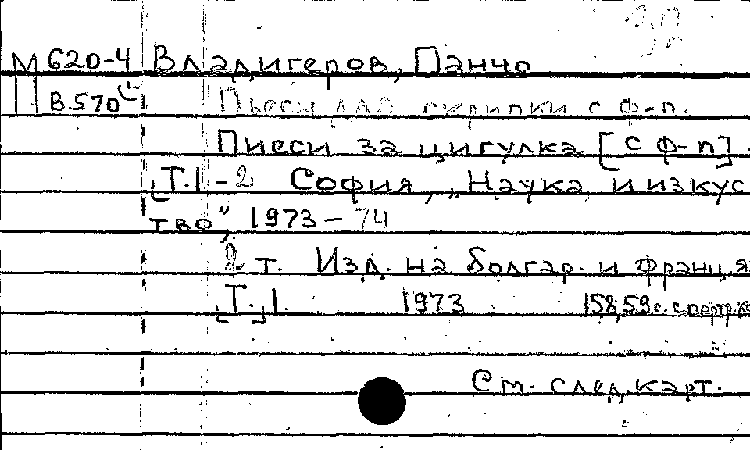 32
М 620-4 Владигеров, Панчо
В 570
Пьесы для скрипки с ф-п.
Пиеси за цигулка [с ф-п].
[Т.] 1-2 София, „Наука и изкус
тво", 1973-74
2 т. Изд. на болгар. и франц. я
[Т.] 1. 1973 158, 59 с. с портр.
См. след. карт.